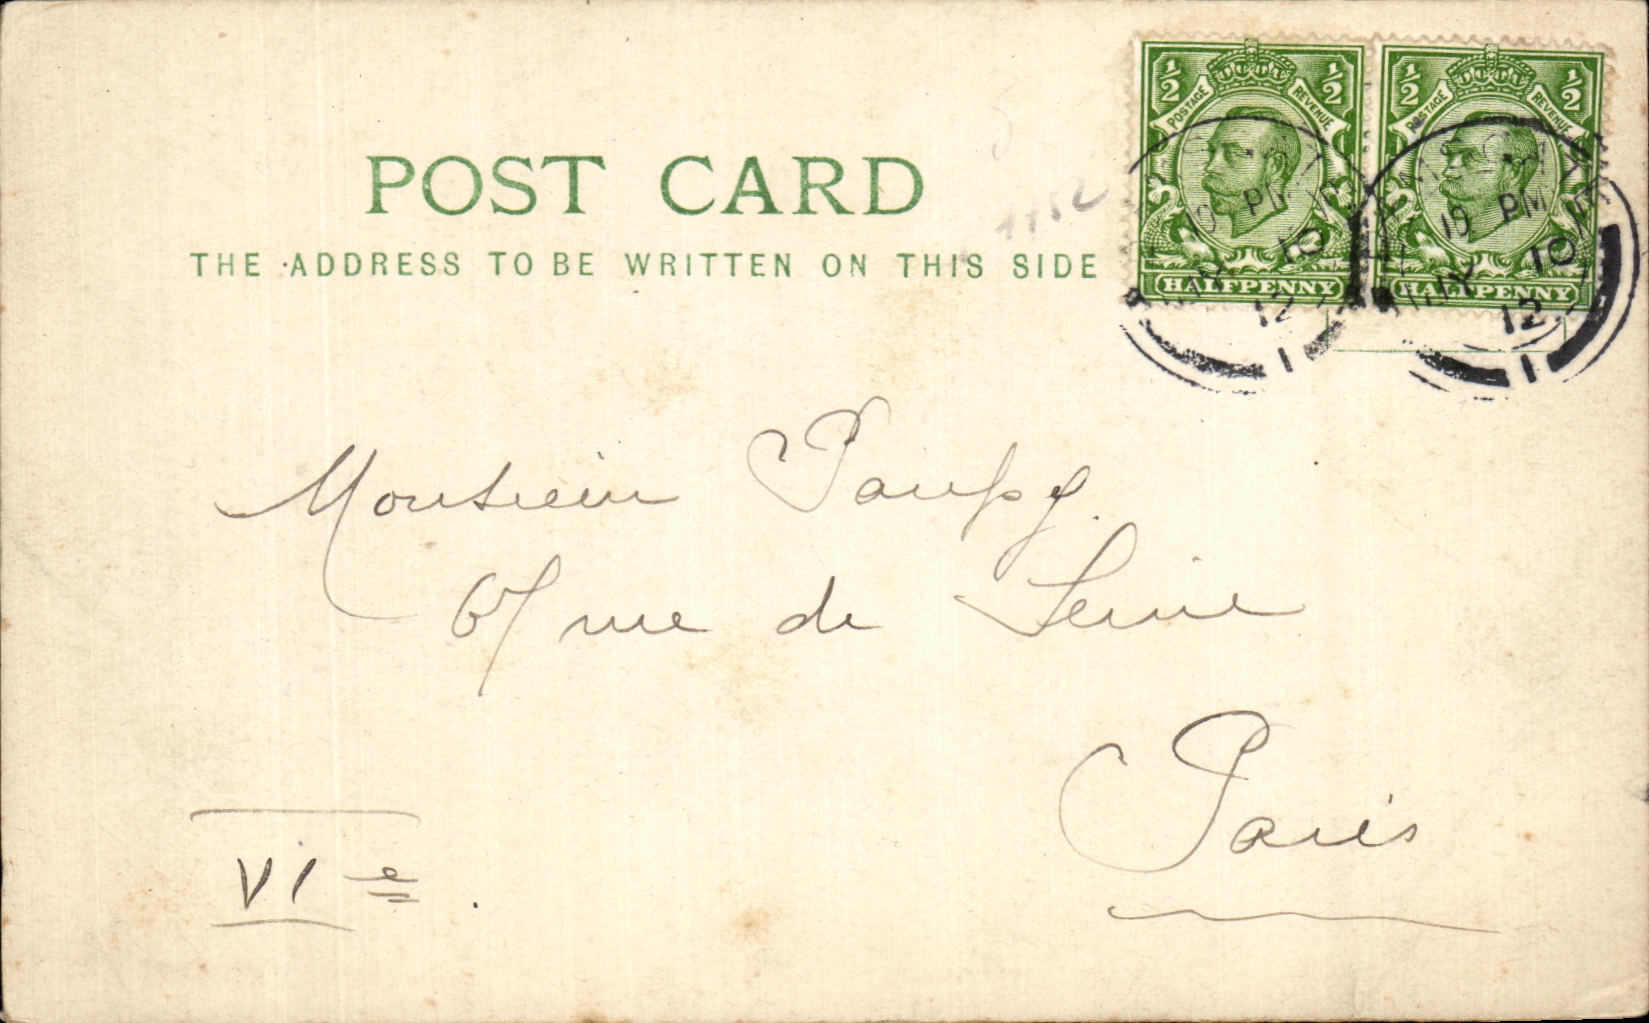 ½ POSTAGE REVENUE ½
½ POSTAGE REVENUE ½
HALFPENNY
HALFPENNY
10 PM
MY 10
12
1
10 PM
MY 10
12
1
POST CARD
THE ADDRESS TO BE WRITTEN ON THIS SIDE
Monsieur
67 rue de Seine
Paris
VI e